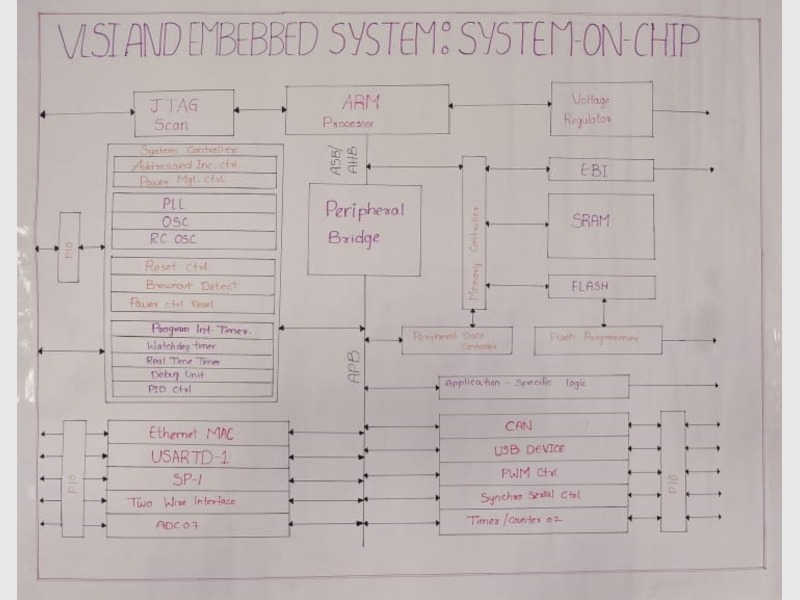 VLSI AND EMBEBBED SYSTEM: SYSTEM-ON-CHIP
JTAG
Scan
ARM
Processor
Voltage
Regulator
System Controller
Addressed Inc. ctrl
Power Mgt. ctrl
PLL
OSC
RC OSC
Reset Ctrl
Brownout Detect
Power ctrl Reset
Program Int. Timer.
Watchdog timer
Real Time Timer
Debug Unit
PIO Ctrl
PIO
ASB/
AHB
Peripheral
Bridge
Memory Controller
EBI
SRAM
FLASH
Peripheral Data
Controller
Flash Programmer
APB
Application - Specific logic
PIO
Ethernet MAC
USARTD-1
SP-1
Two Wire Interface
ADC 07
CAN
USB DEVICE
PWM Ctrl
Synchro Serial Ctrl
Timer/Counter 0-2
PIO